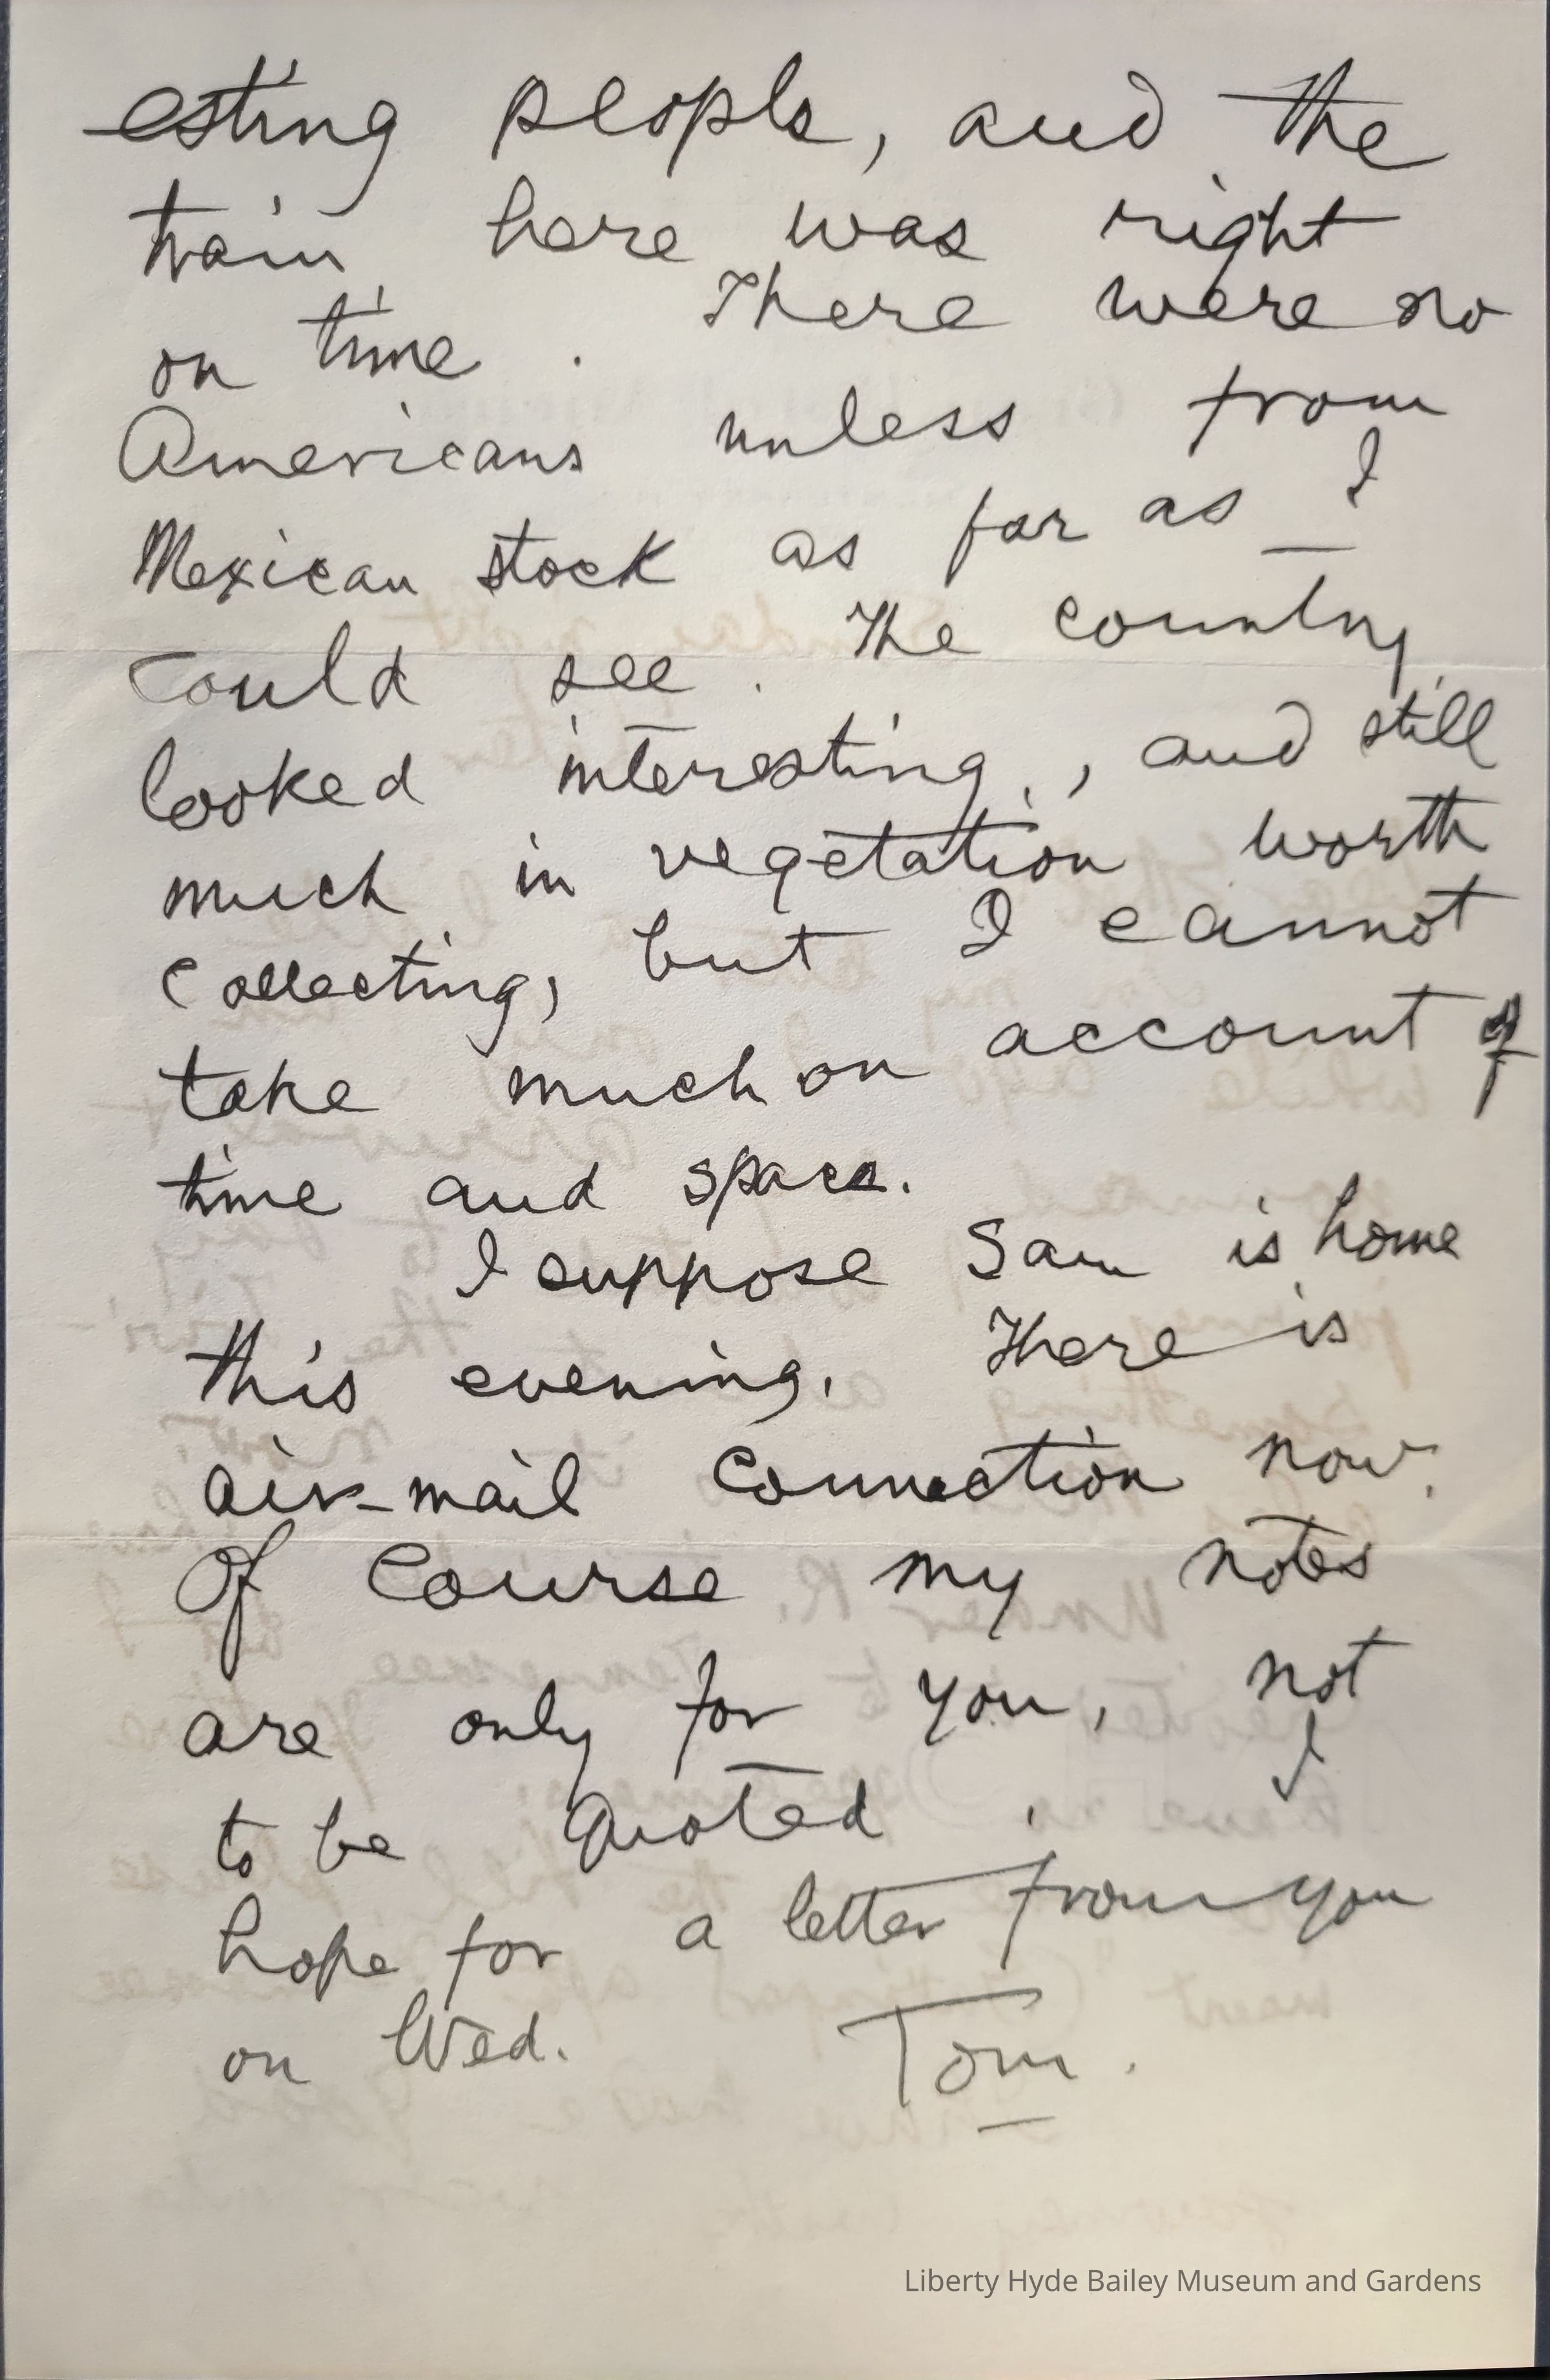 esting people, and the
train here was right
on time. There were no
Americans unless from
Mexican stock as far as I
could see. The country
looked interesting, and still
much in vegetation worth
collecting, but I cannot
take much on account of
time and space.
I suppose Sam is home
this evening. There is
air-mail connection now.
Of course my notes
are only for you, not
to be quoted. I
hope for a letter from you
on Wed. Tom.
Liberty Hyde Bailey Museum and Gardens